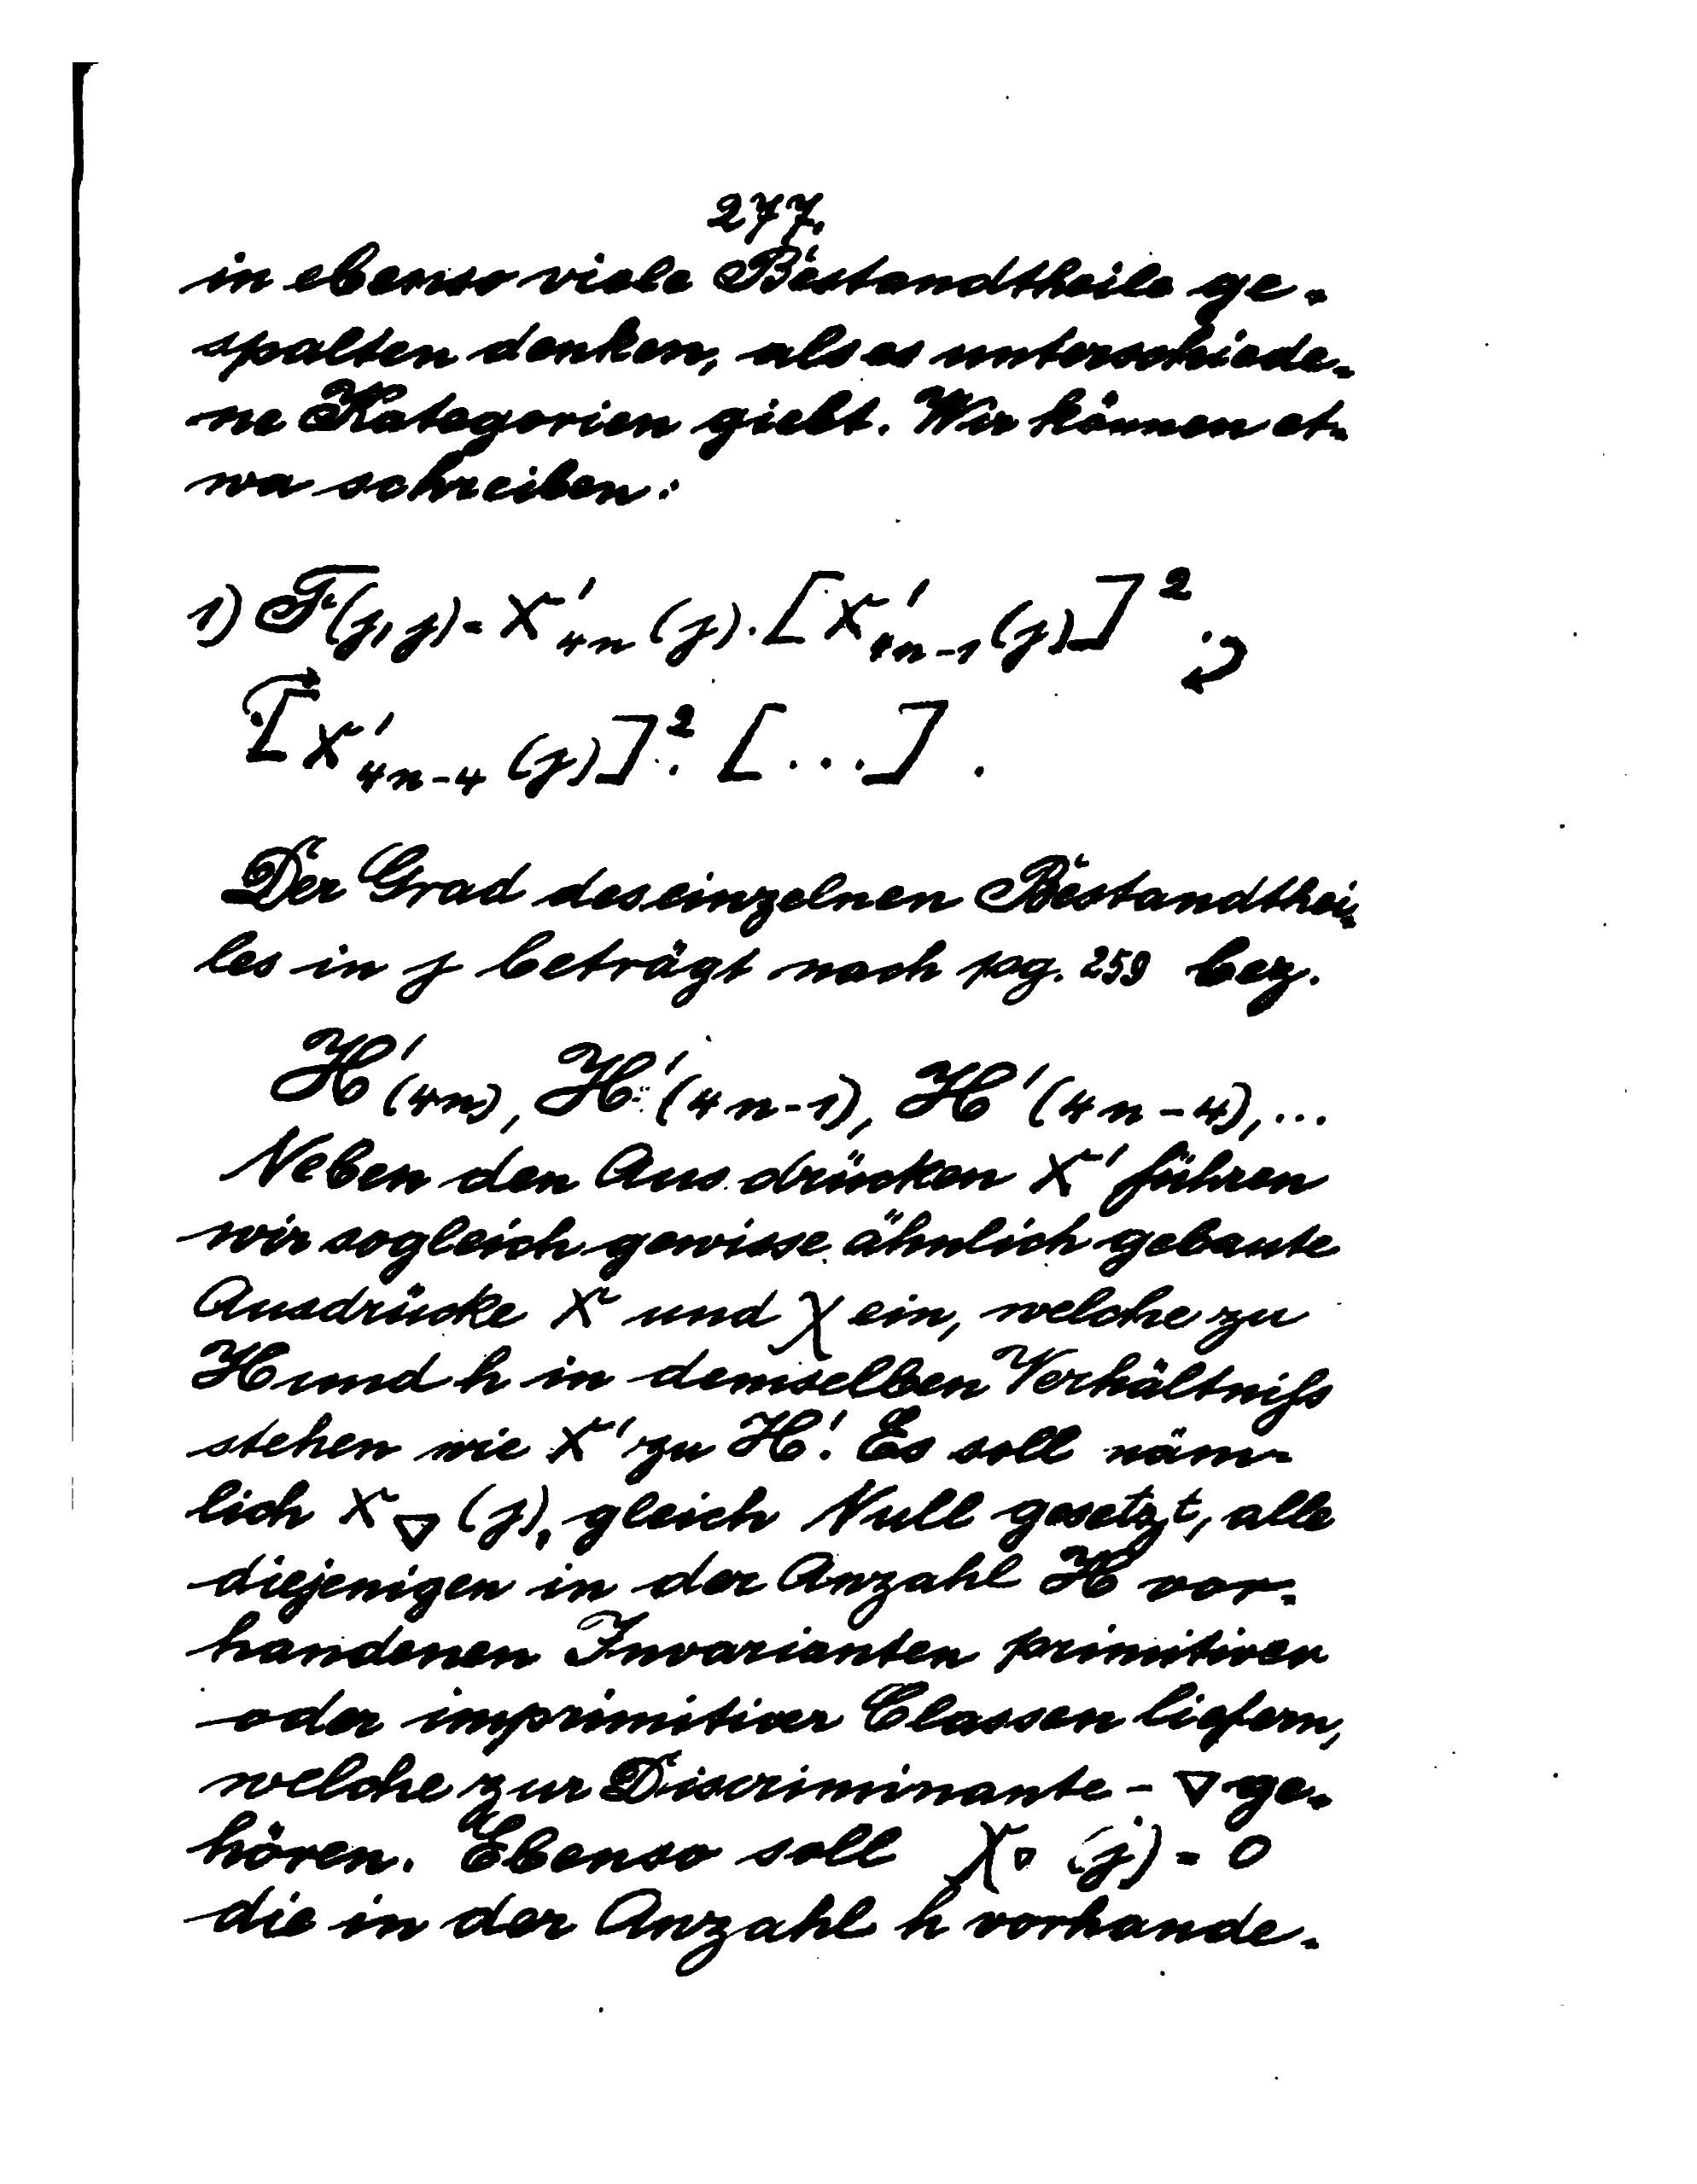 277.
in ebenso viele Bestandtheile ge-
spalten denken, als es unterschiede-
ne Kategorien giebt. Wir können et-
wa schreiben:
1) F(j,j) = X'₄ₙ(j)·[X'₄ₙ₋₁(j)]²·
·[X'₄ₙ₋₄(j)]²·[...].
Der Grad des einzelnen Bestandthei-
les in j beträgt nach pag. 259 bez.
H'(4n), H'(4n-1), H'(4n-4), ...
Neben den Ausdrücken X' führen
wir sogleich gewisse ähnlich gebaute
Ausdrücke X und χ ein, welche zu
H und h in demselben Verhältniß
stehen wie X' zu H'. Es soll näm-
lich X▽(j), gleich Null gesetzt, alle
diejenigen in der Anzahl H vor-
handenen Invarianten primitiver
oder imprimitiver Classen liefern,
welche zur Discriminante -▽ ge-
hören. Ebenso soll χ▽(j) = 0
die in der Anzahl h vorhande-